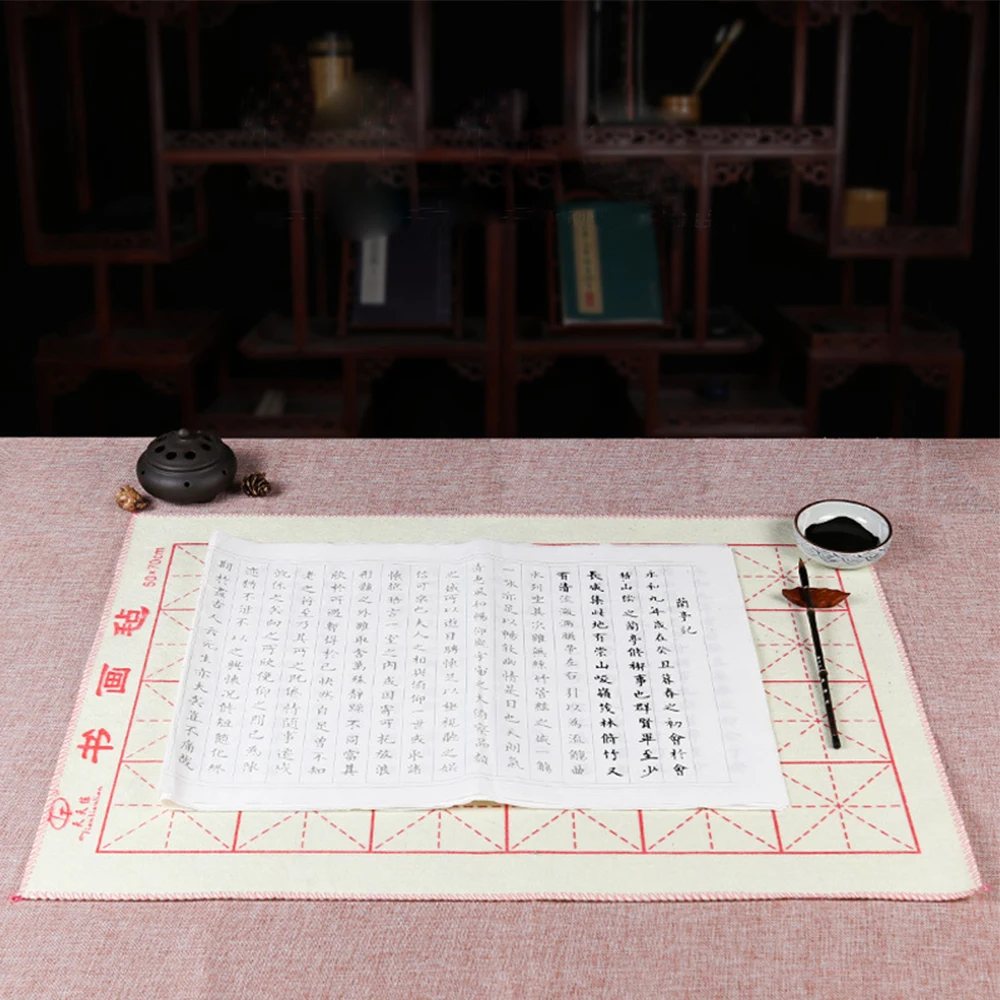 蘭亭記
永和九年歲在癸丑暮春之初會於會
稽山陰之蘭亭修禊事也群賢畢至少
長咸集此地有崇山峻嶺茂林脩竹又
有清流激湍映帶左右引以為流觴曲
水列坐其次雖無絲竹管絃之盛一觴
一詠亦足以暢敘幽情是日也天朗氣
清惠風和暢仰觀宇宙之大俯察品類
之盛所以遊目騁懷足以極視聽之娛
信可樂也夫人之相與俯仰一世或取諸
懷抱悟言一室之內或因寄所託放浪
形骸之外雖取舍萬殊靜躁不同當其
欣於所遇暫得於己快然自足曾不知
老之將至及其所之既倦情隨事遷感
慨係之矣向之所欣俛仰之間已為陳
迹猶不能不以之興懷況脩短隨化終
期於盡古人云死生亦大矣豈不痛哉
50*70cm
书画毡